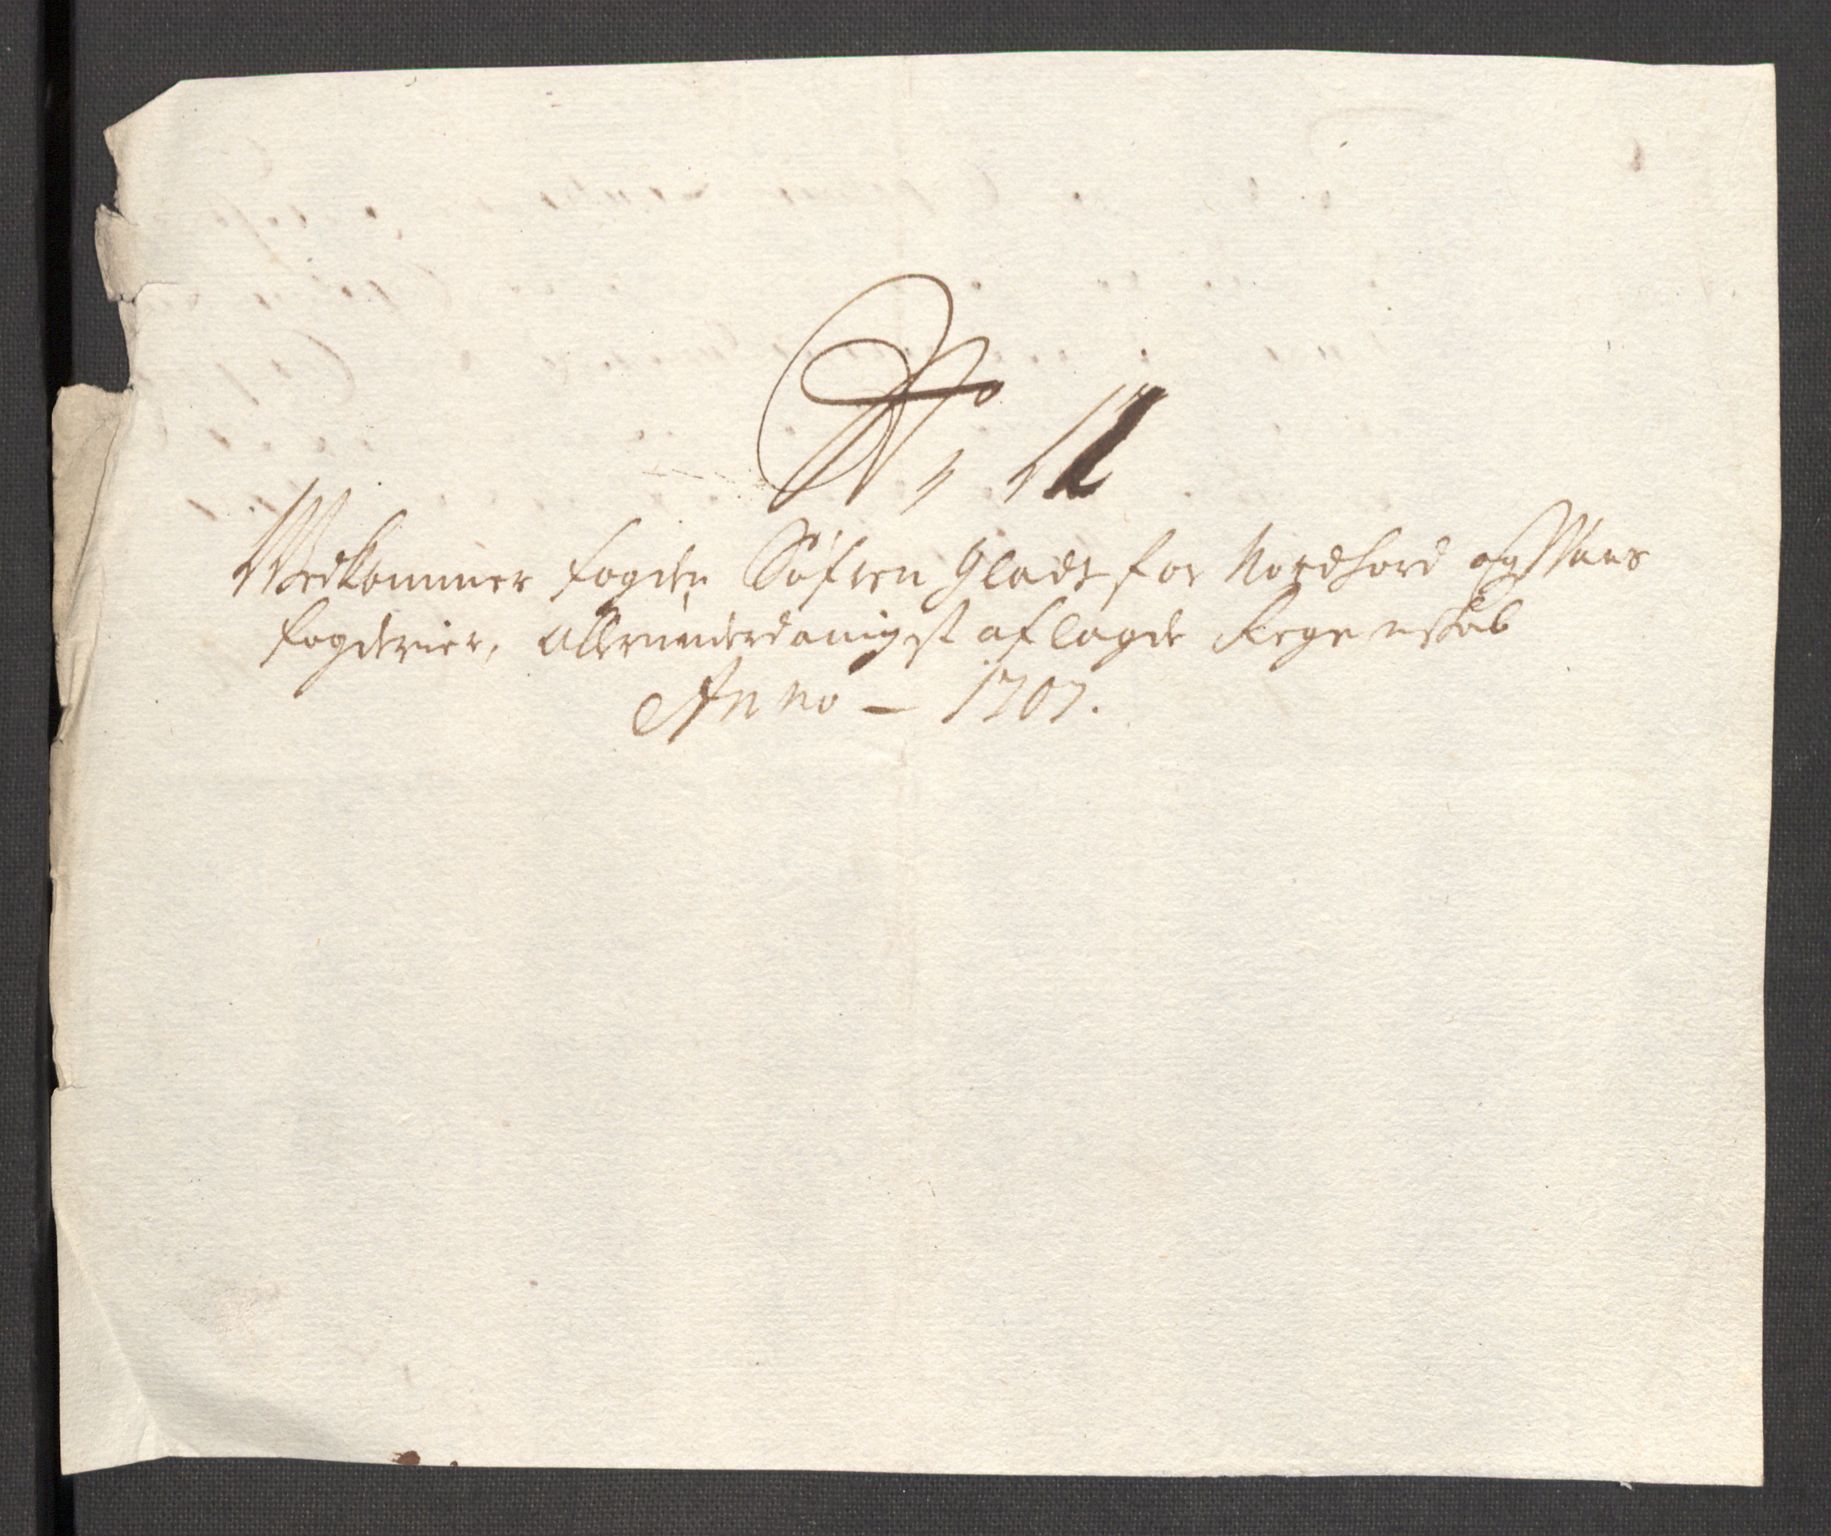 No 11
Vedkommer fogden Søfren Gladt for Nordhord og Waas
fogderier, allerunderdanigst aflagde Regenskab
Anno – 1707.